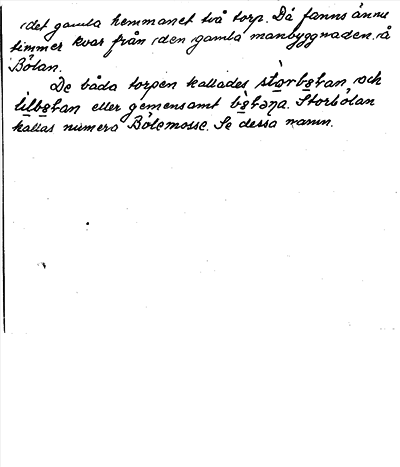 det gamla hemmanet två torp. Då fanns ännu
timmer kvar från den gamla manbyggnaden å
Bölan.
De båda torpen kallades stòrbɵ̱ɽan och
lìlbɵ̱ɽan eller gemensamt bɵ̱̀ɽəɳa. Storbölan
kallas numera Bölemosse. Se dessa namn.